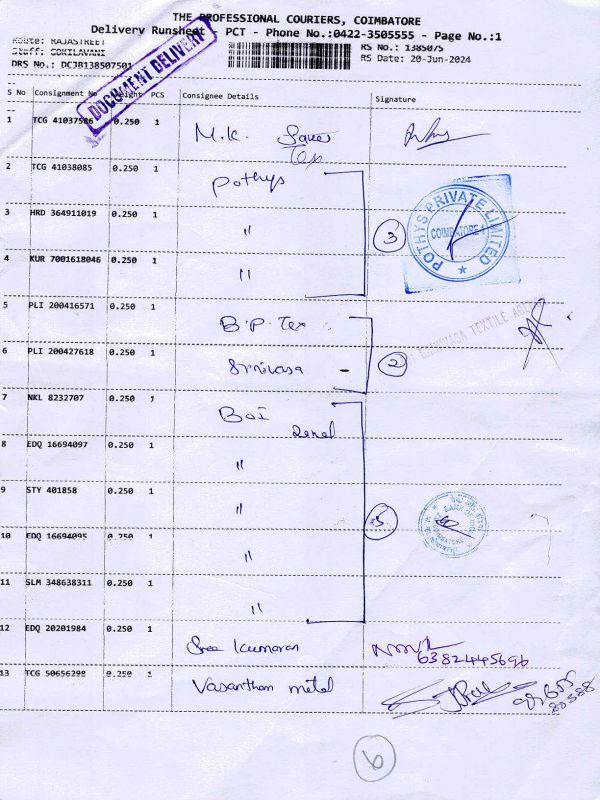 THE PROFESSIONAL COURIERS, COIMBATORE
Delivery Runsheet - PCT - Phone No.:0422-3505555 - Page No.:1
Route: RAJASTREET
RS No.: 1385075
Staff: GOKILAVANI
RS Date: 20-Jun-2024
DRS No.: DCJB138507501
DOCUMENT DELIVERY
S No Consignment No Weight PCS Consignee Details Signature
1 TCG 41037586 0.250 1 M.K. Tex
2 TCG 41038085 0.250 1 Pothys
3 HRD 364911019 0.250 1 "
3
POTHYS PRIVATE LIMITED
COIMBATORE-1
4 KUR 7001618046 0.250 1 "
5 PLI 200416571 0.250 1 B.P. Tex
TEXTILE
6 PLI 200427618 0.250 1 Srinivasa -
2
7 NKL 8232707 0.250 1 BOI
Zonal
8 EDQ 16694097 0.250 1 "
9 STY 401858 0.250 1 "
5
BANK OF
10 EDQ 16694095 0.250 1 "
11 SLM 348638311 0.250 1 "
12 EDQ 20201984 0.250 1 Sree Kumaran
6382445696
13 TCG 50656298 0.250 1 Vasanthan metal
6